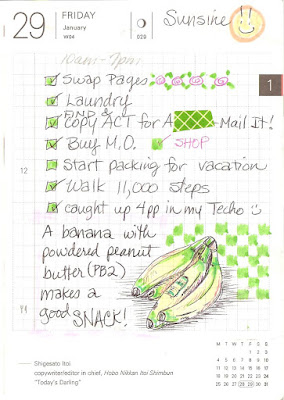 29 FRIDAY
January
W04
029
Sunsine
10am-7pm
1
Swap Pages
Laundry
FIND &
Copy ACT for A Mail It!
Buy M.O. SHOP
12
Start packing for vacation
Walk 11,000 steps
caught up 4pp in my Techo
A banana with
powdered peanut
butter (PB2)
makes a
good SNACK!
Shigesato Itoi
copywriter/editor in chief, Hobo Nikkan Itoi Shimbun
"Today's Darling"
M T W T F S S
1 2 3
4 5 6 7 8 9 10
11 12 13 14 15 16 17
18 19 20 21 22 23 24
25 26 27 28 29 30 31